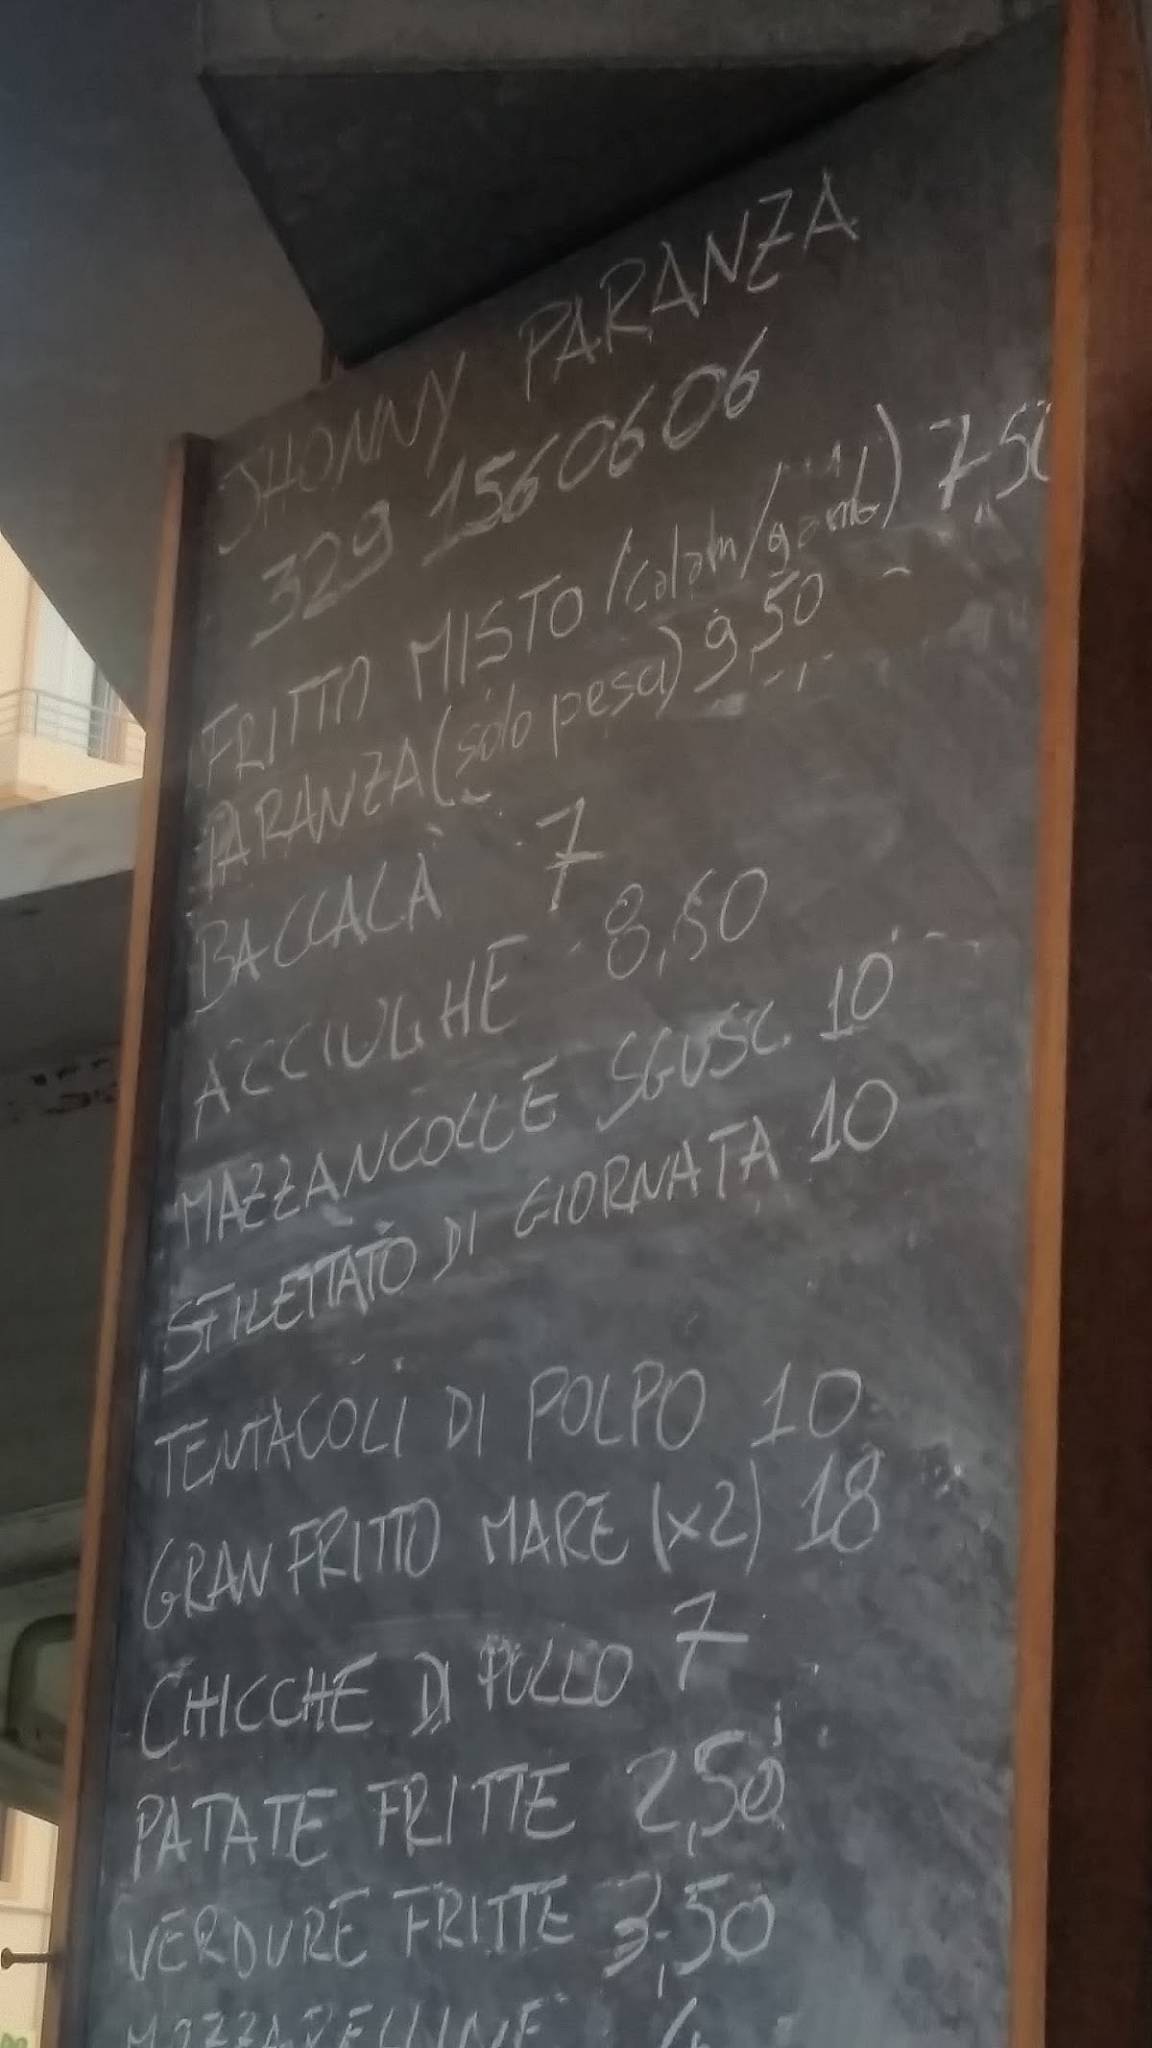 JHONNY PARANZA
329 1560606
FRITTO MISTO (calam/gamb) 7,50
PARANZA (solo pesce) 9,50
BACCALÀ 7
ACCIUGHE 8,50
MAZZANCOLLE SGUSC. 10
SFILETTATO DI GIORNATA 10
TENTACOLI DI POLPO 10
GRAN FRITTO MARE (x2) 18
CHICCHE DI POLLO 7
PATATE FRITTE 2,50
VERDURE FRITTE 3,50
MOZZARELLINE